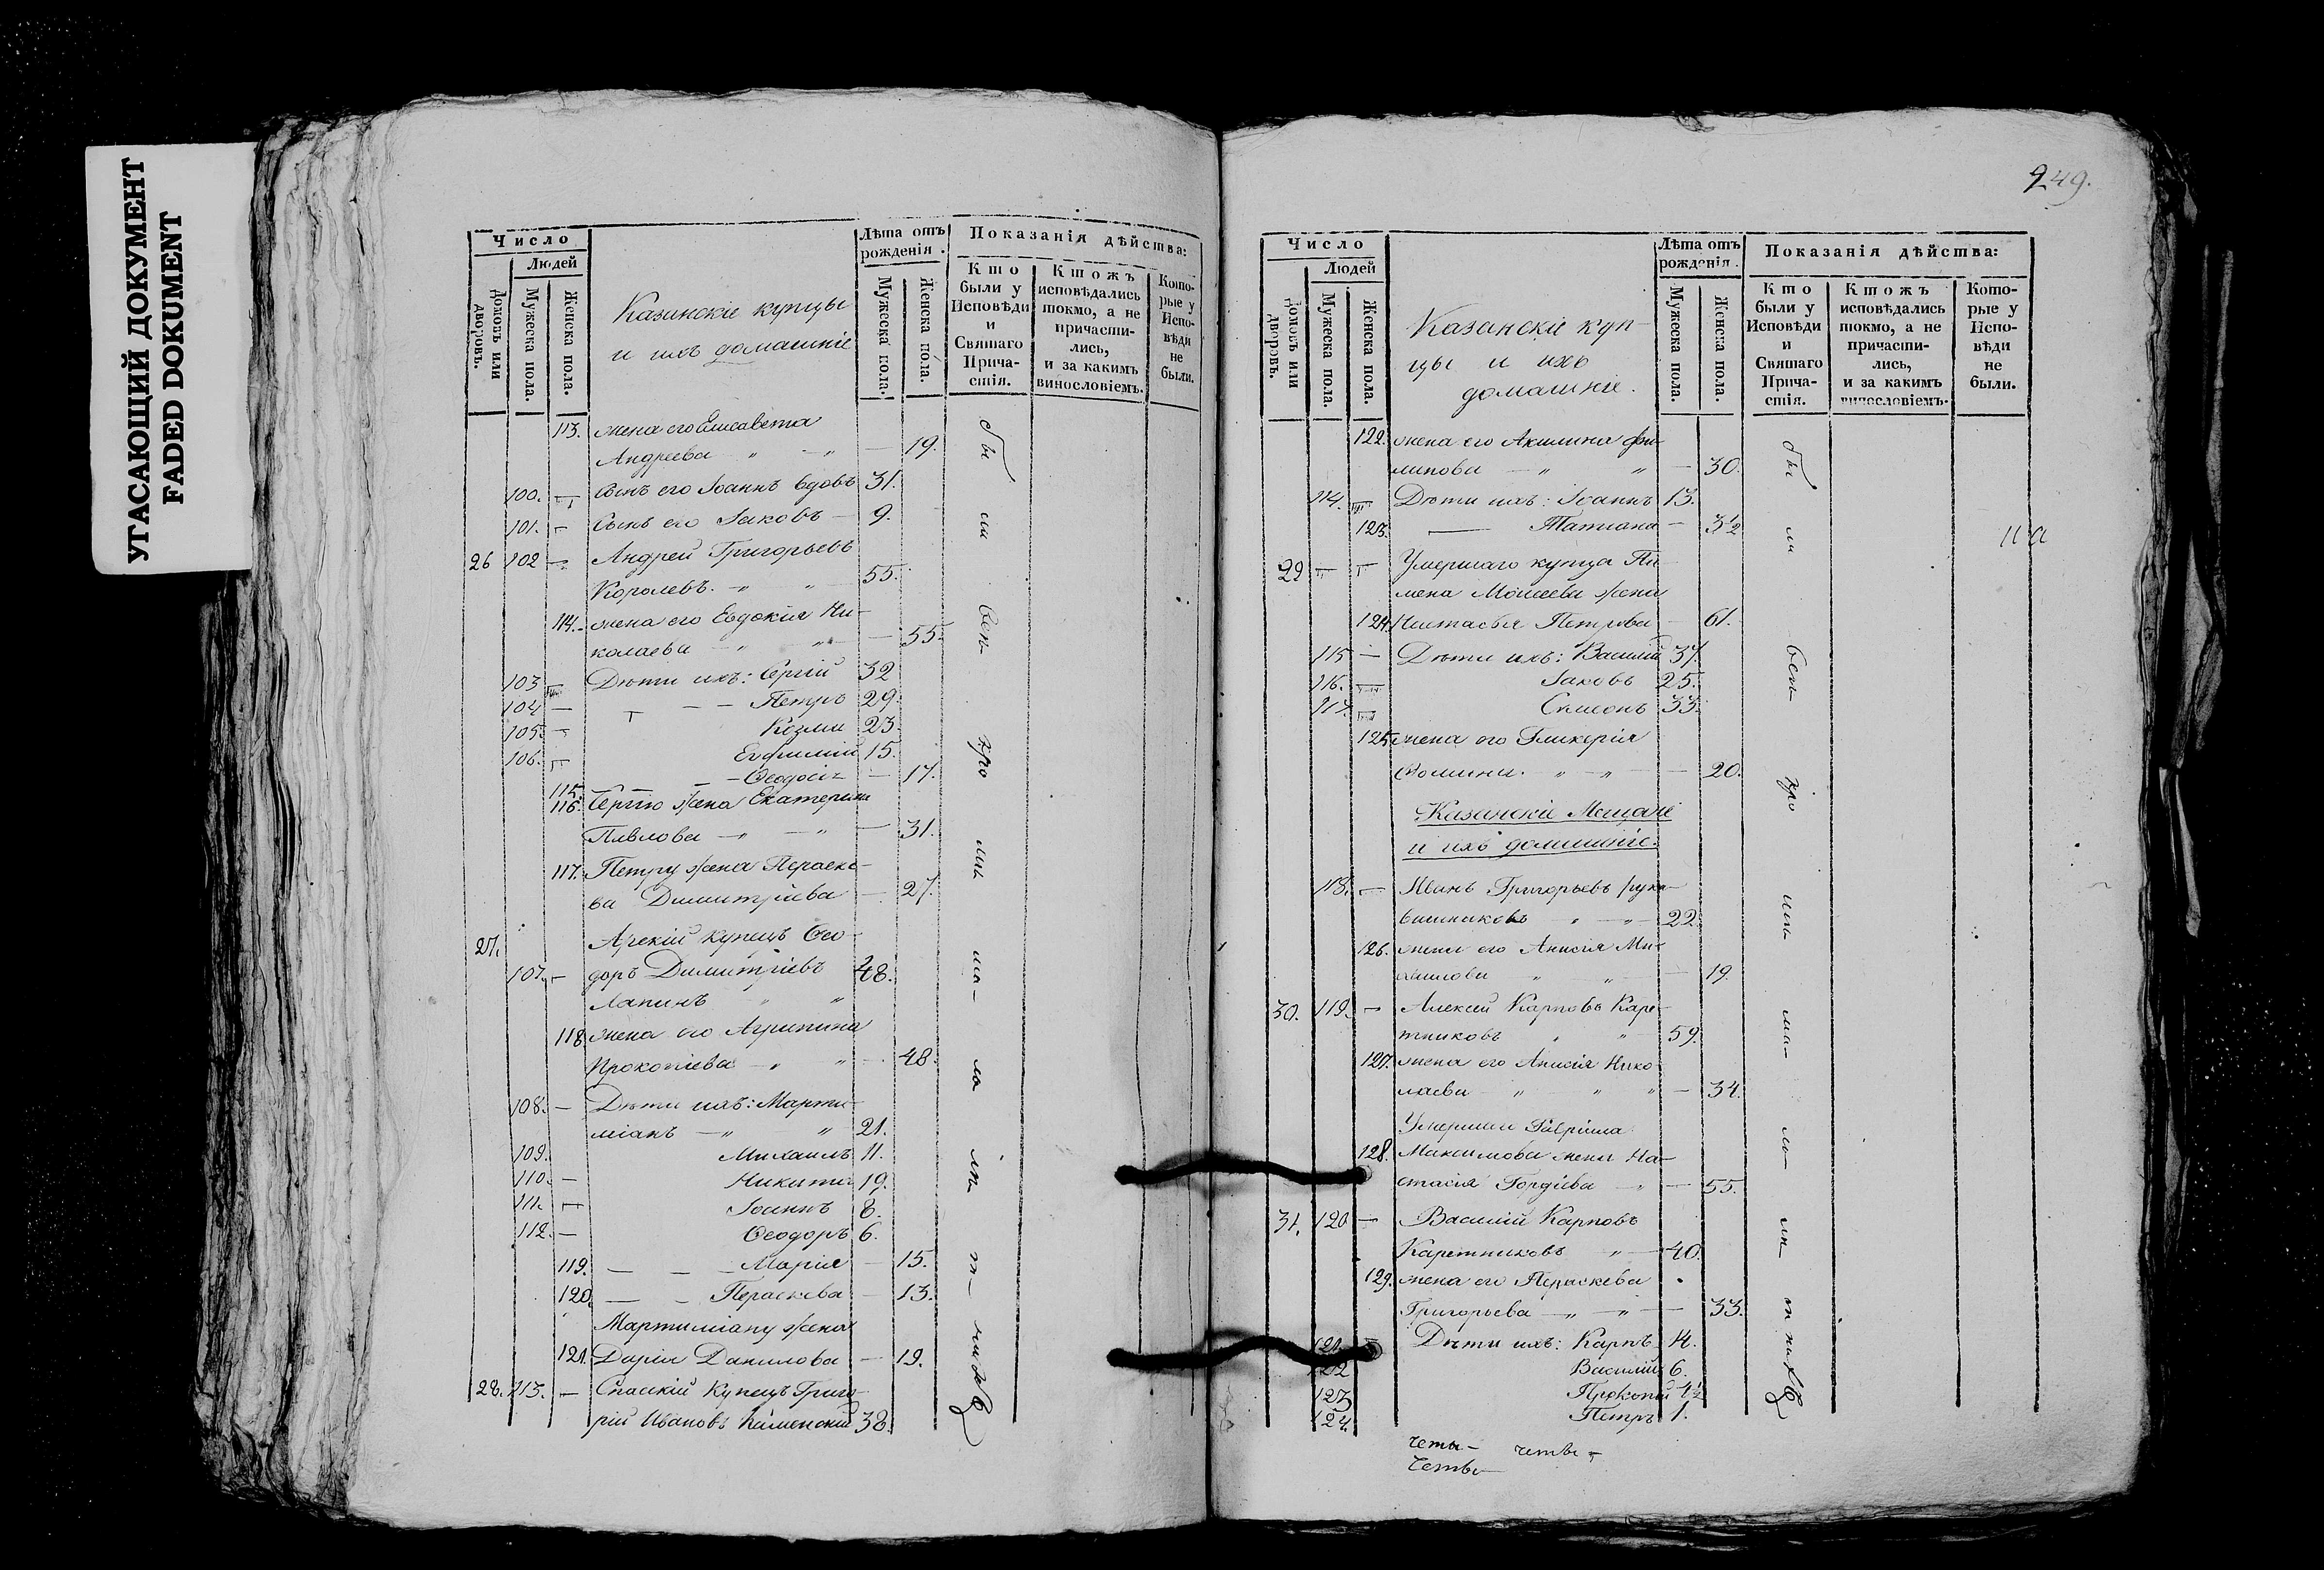 УГАСАЮЩИЙ ДОКУМЕНТ
FADED DOKUMENT
Число
Людей
Домовъ или дворовъ.
Мужеска пола.
Женска пола.
Казанскіе купцы
и ихъ домашніе
Лѣта отъ рожденія.
Мужеска пола.
Женска пола.
Показанія дѣйства:
Кто были у Исповѣди и Святаго Причастія.
Ктожъ исповѣдались токмо, а не причастились, и за какимъ винословіемъ.
Которые у Исповѣди не были.
113. жена его Елисавета
Андреева 19.
100. Сынъ его Іоаннъ вдовъ 31.
101. Сынъ его Іаковъ 9.
26 102 Андрей Григорьевъ
Королевъ 55.
114. жена его Евдокія Ни-
колаева 55.
103 Дѣти ихъ: Сергій 32
104 Петръ 29.
105. Козма 23.
106. Евфимій 15.
115. Ѳеодосія 17.
116. Сергію жена Екатерина
Павлова 31.
117. Петру жена Параске-
ва Димитріева 27.
27. Арскій купецъ Ѳео-
107. доръ Димитріевъ 48.
Лапинъ
118 жена его Агрипина
Прокопіева 48.
108. Дѣти ихъ: Марти-
міанъ 21.
109. Михаилъ 11.
110. Никита 19.
111. Іоаннъ 8.
112. Ѳеодоръ 6.
119. Марія 15.
120. Параскева 13.
Мартиміану жена
121. Дарія Данилова 19.
28. 113. Спасскій Купецъ Григо-
рій Ивановъ Каменскій 38.
249.
Число
Людей
Домовъ или дворовъ.
Мужеска пола.
Женска пола.
Казанскіе куп-
цы и ихъ
домашніе.
Лѣта отъ рожденія.
Мужеска пола.
Женска пола.
Показанія дѣйства:
Кто были у Исповѣди и Святаго Причастія.
Ктожъ исповѣдались токмо, а не причастились, и за какимъ винословіемъ.
Которые у Исповѣди не были.
122. жена его Акилина Фи-
липова 30.
114. Дѣти ихъ: Іоаннъ 13.
123. Татіана 3½
29 Умершаго купца Пи-
мена Моисеева жена
124. Настасья Петрова 61.
115 Дѣти ихъ: Василій 37.
116. Іаковъ 25.
117. Симеонъ 33.
125. жена его Гликерія
Фомина 20.
Казанскіе Мещане
и ихъ домашніе.
118. Иванъ Григорьевъ рука-
вишниковъ 22.
126. жена его Анисія Ми-
хаилова 19.
30. 119. Алексій Карповъ Каре-
тниковъ 59.
127. жена его Анисія Нико-
лаева 34.
Умершаго Гавріила
128. Максимова жена На-
стасія Гордѣева 55.
31. 120 Василій Карповъ
Каретниковъ 40.
129. жена его Параскева
Григорьева 33.
121. Дѣти ихъ: Карпъ 14.
122 Василій 6.
123 Прокопій 4½
124. Петръ 1.